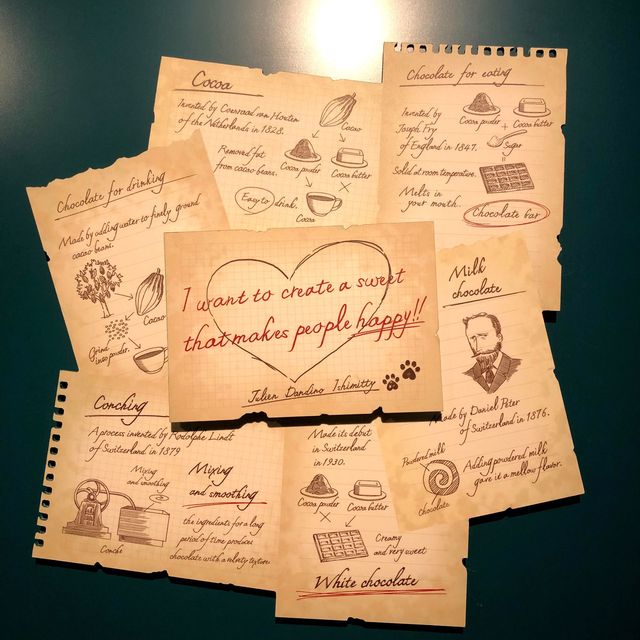 Cocoa
Invented by Coenraad van Houten
of the Netherlands in 1828.
Cacao
Removed fat
from cacao beans.
Cocoa powder
Cocoa butter
Easy to drink.
Cocoa
Chocolate for eating
Invented by
Joseph Fry
of England in 1847.
Cocoa powder + Cocoa butter
Sugar
Solid at room temperature.
Melts in
your mouth.
Chocolate bar
Chocolate for drinking
Made by adding water to finely ground
cacao beans.
Cacao
Grind
into powder.
I want to create a sweet
that makes people happy!!
Julien Dandino Ishimitty
Milk
chocolate
Made by Daniel Peter
of Switzerland in 1876.
Powdered milk
Adding powdered milk
gave it a mellow flavor.
Chocolate
Conching
A process invented by Rodolphe Lindt
of Switzerland in 1879
Mixing
and smoothing
Conche
Mixing
and smoothing
the ingredients for a long
period of time produces
chocolate with a velvety texture.
Made its debut
in Switzerland
in 1930.
Cocoa powder
Cocoa butter
Creamy
and very sweet
White chocolate